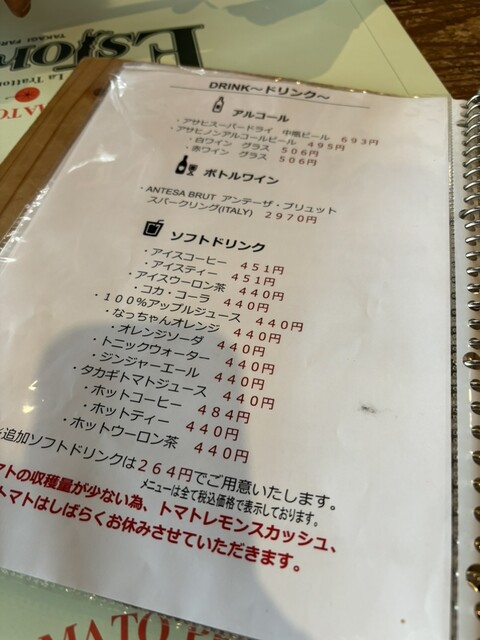 Esfor
TAKAGI FAR
La Trattor
MATO
DRINK～ドリンク～
アルコール
・アサヒスーパードライ 中瓶ビール 693円
・アサヒノンアルコールビール 495円
・白ワイン グラス 506円
・赤ワイン グラス 506円
ボトルワイン
・ANTESA BRUT アンテーザ・ブリュット
スパークリング(ITALY) 2970円
ソフトドリンク
・アイスコーヒー 451円
・アイスティー 451円
・アイスウーロン茶 440円
・コカ・コーラ 440円
・100%アップルジュース 440円
・なっちゃんオレンジ 440円
・オレンジソーダ 440円
・トニックウォーター 440円
・ジンジャーエール 440円
・タカギトマトジュース 440円
・ホットコーヒー 484円
・ホットティー 440円
・ホットウーロン茶 440円
追加ソフトドリンクは264円でご用意いたします。
メニューは全て税込価格で表示しております。
マトの収穫量が少ない為、トマトレモンスカッシュ、
トマトはしばらくお休みさせていただきます。
MATO